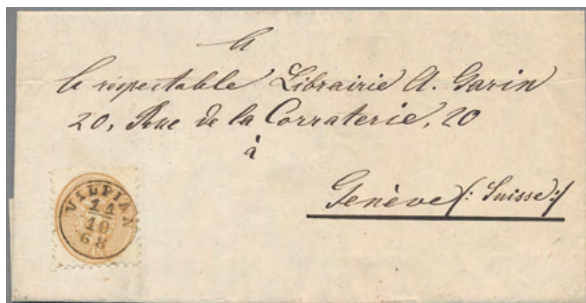 A
la respectable Librairie A. Garin
20, Rue de la Corraterie, 20
à
Genève (: Suisse :)
VILPIAN
14
10
68